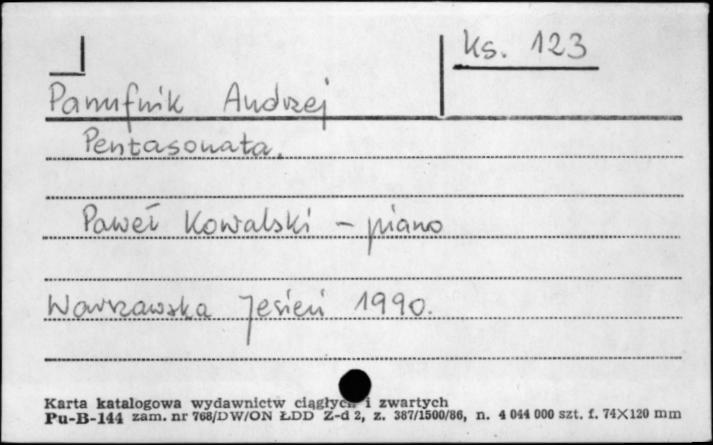 Ks. 123
Panufnik Andrzej
Pentasonata.
Paweł Kowalski – piano
Warszawska Jesień 1990.
Karta katalogowa wydawnictw ciągłych i zwartych
Pu-B-144 zam. nr 768/DW/ON ŁDD Z-d 2, z. 387/1500/86, n. 4 044 000 szt. f. 74×120 mm